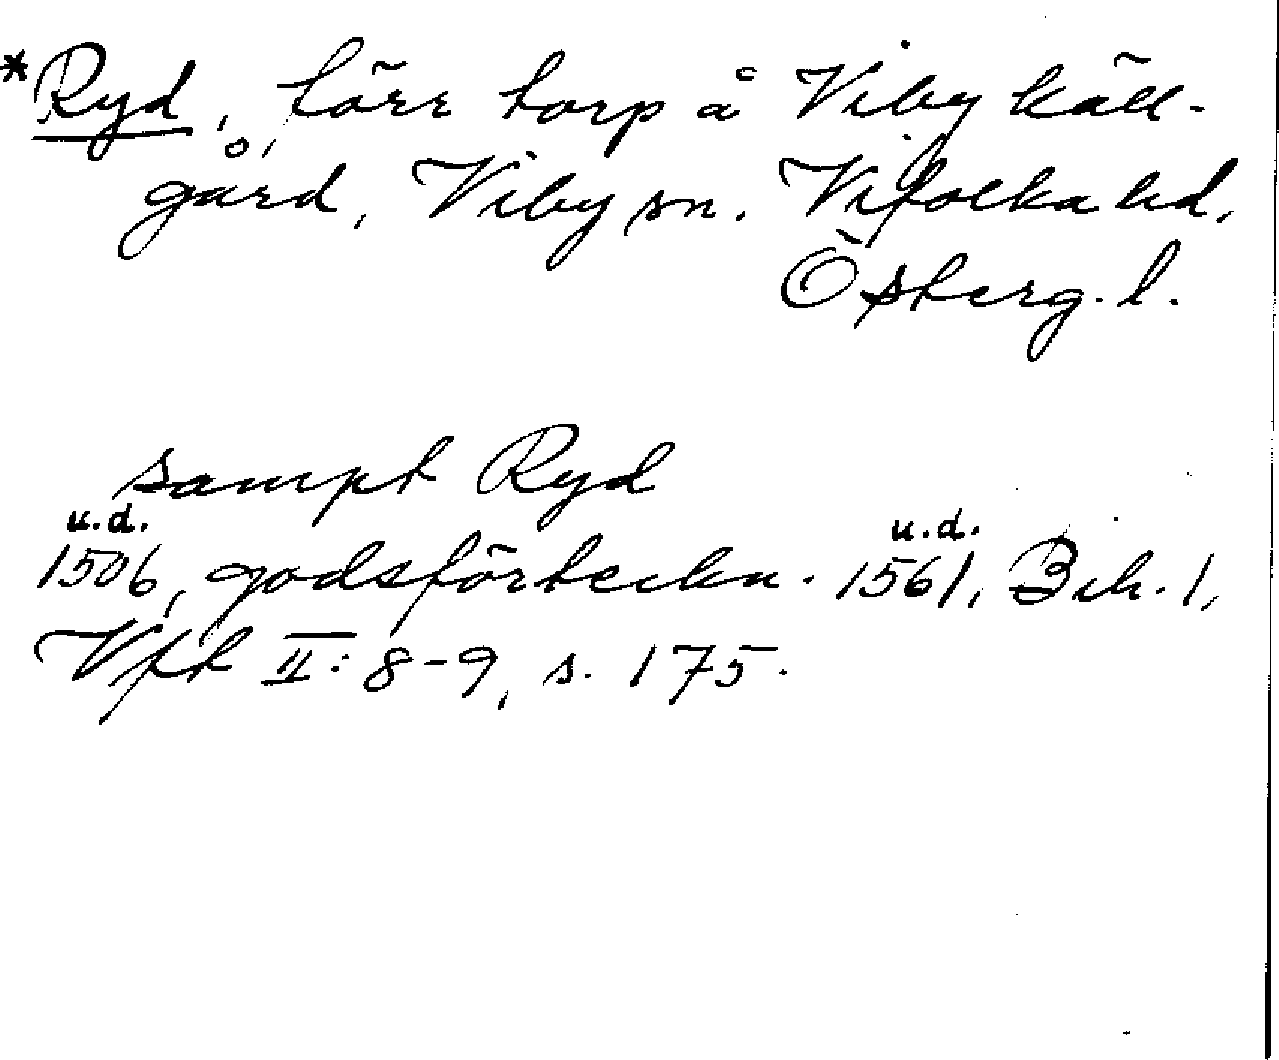 *Ryd, förr torp å Viby käll-
gård, Viby sn. Vifolka hd,
Österg. l.
sampt Ryd
u.d. u.d.
1506, godsförteckn. 1561, Bih. 1,
Vft II: 8-9, s. 175.